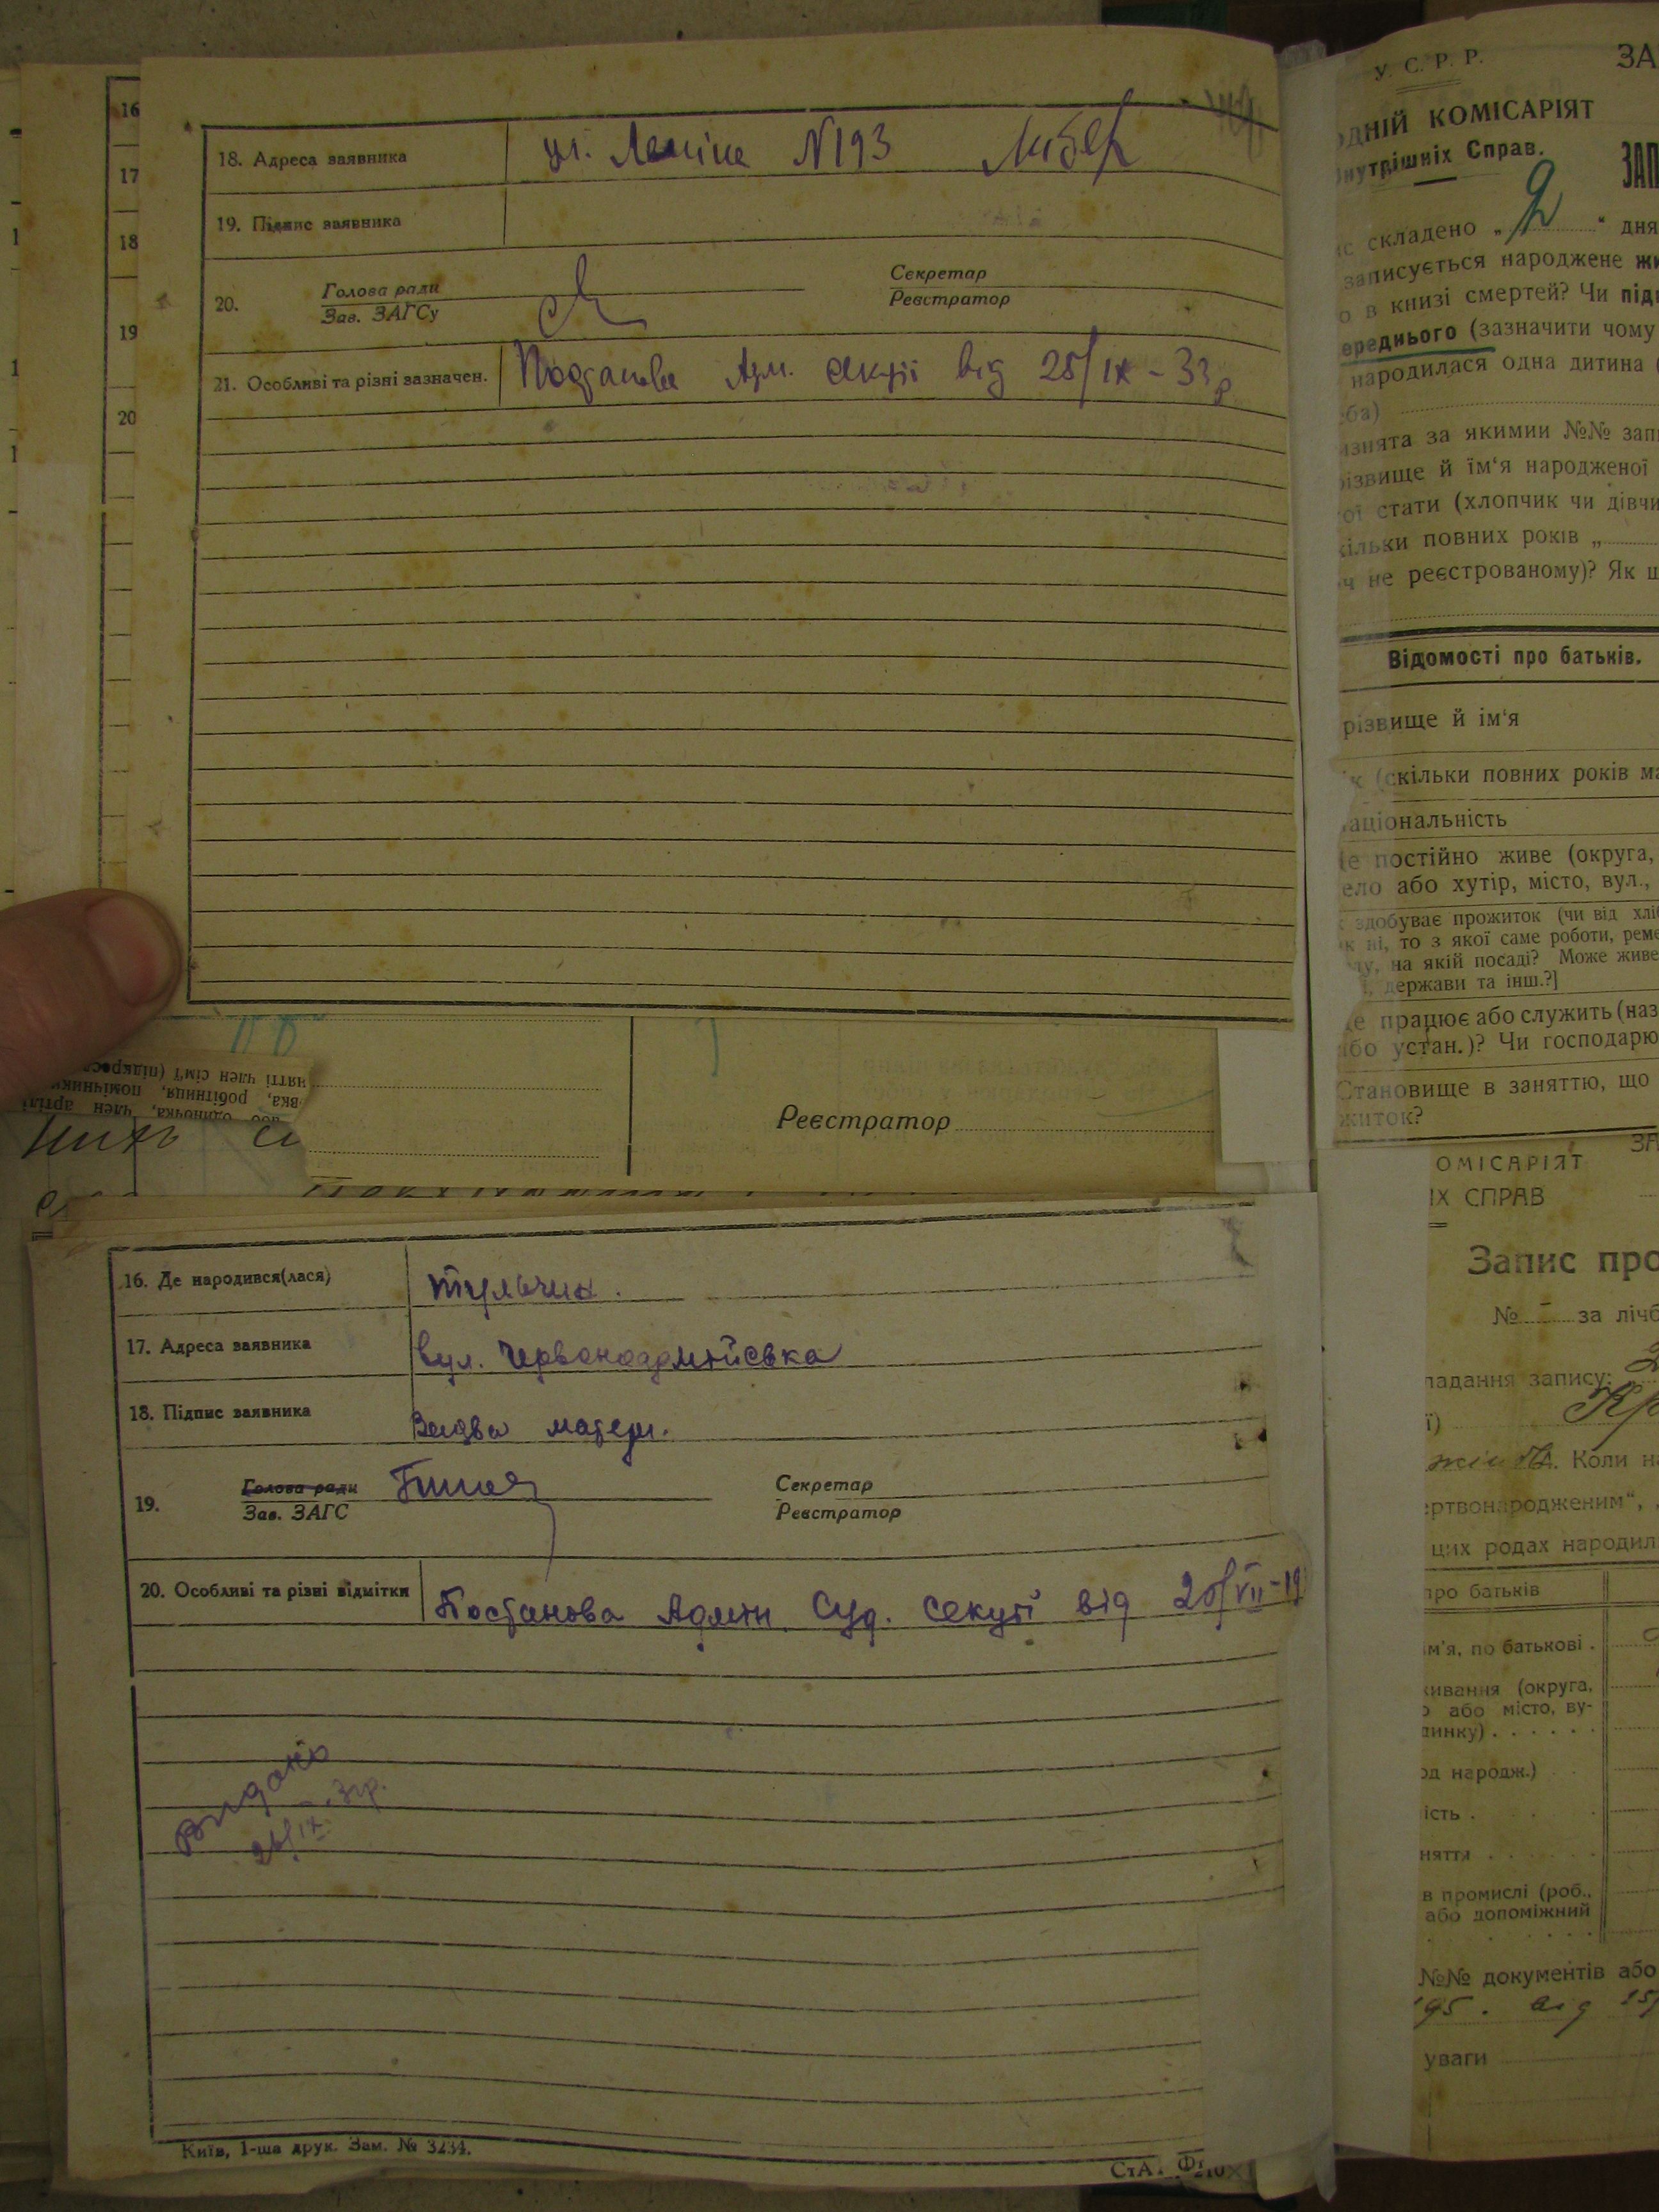 16
17
18
19
20
18. Адреса заявника ул. Леніна N193
19. Підпис заявника
20. Голова ради
Зав. ЗАГСу
Секретар
Реєстратор
21. Особливі та різні зазначен. Постанова Адм. секції від 25/IX - 33 р
няття член сім'ї
вка, робітниця, помічник
або одиночка, член артілі
Реєстратор
16. Де народився(лася) Тульчин.
17. Адреса заявника вул. Червоноармійська
18. Підпис заявника Вдова матери.
19. Голова ради
Зав. ЗАГС
Секретар
Реєстратор
20. Особливі та різні відмітки Постанова Адмін. Суд. секції від 20/VII-19
Видано
Київ, 1-ша друк. Зам. № 3234.
У. С. Р. Р.
ЗА
ДНІЙ КОМІСАРІЯТ
нутрішніх Справ.
ЗАП
с складено „ 2 “ дня
записується народжене жи
о в книзі смертей? Чи під
ереднього (зазначити чому
народилася одна дитина (
ба)
изнята за якимии №№ зап
різвище й їм‘я народженої
ої стати (хлопчик чи дівчи
кільки повних років „
ч не реєстрованому)? Як
Відомості про батьків.
різвище й ім‘я
к (скільки повних років ма
аціональність
е постійно живе (округа,
ело або хутір, місто, вул.,
здобуває прожиток (чи від хлі
к ні, то з якої саме роботи, реме
ду, на якій посаді? Може живе
, держави та інш.?]
е працює або служить (наз
бо устан.)? Чи господарю
Становище в заняттю, що
житок?
ОМІСАРІЯТ
ІХ СПРАВ
Запис про
№ - за лічб
ладання запису:
ї)
Коли н
ертвонародженим“,
цих родах народил
про батьків
м'я, по батькові .
живання (округа,
о або місто, ву-
динку) . . . . . .
од народж.)
ість .
няття . . . . .
в промислі (роб.,
або допоміжний
№№ документів або
195. від 25/
уваги